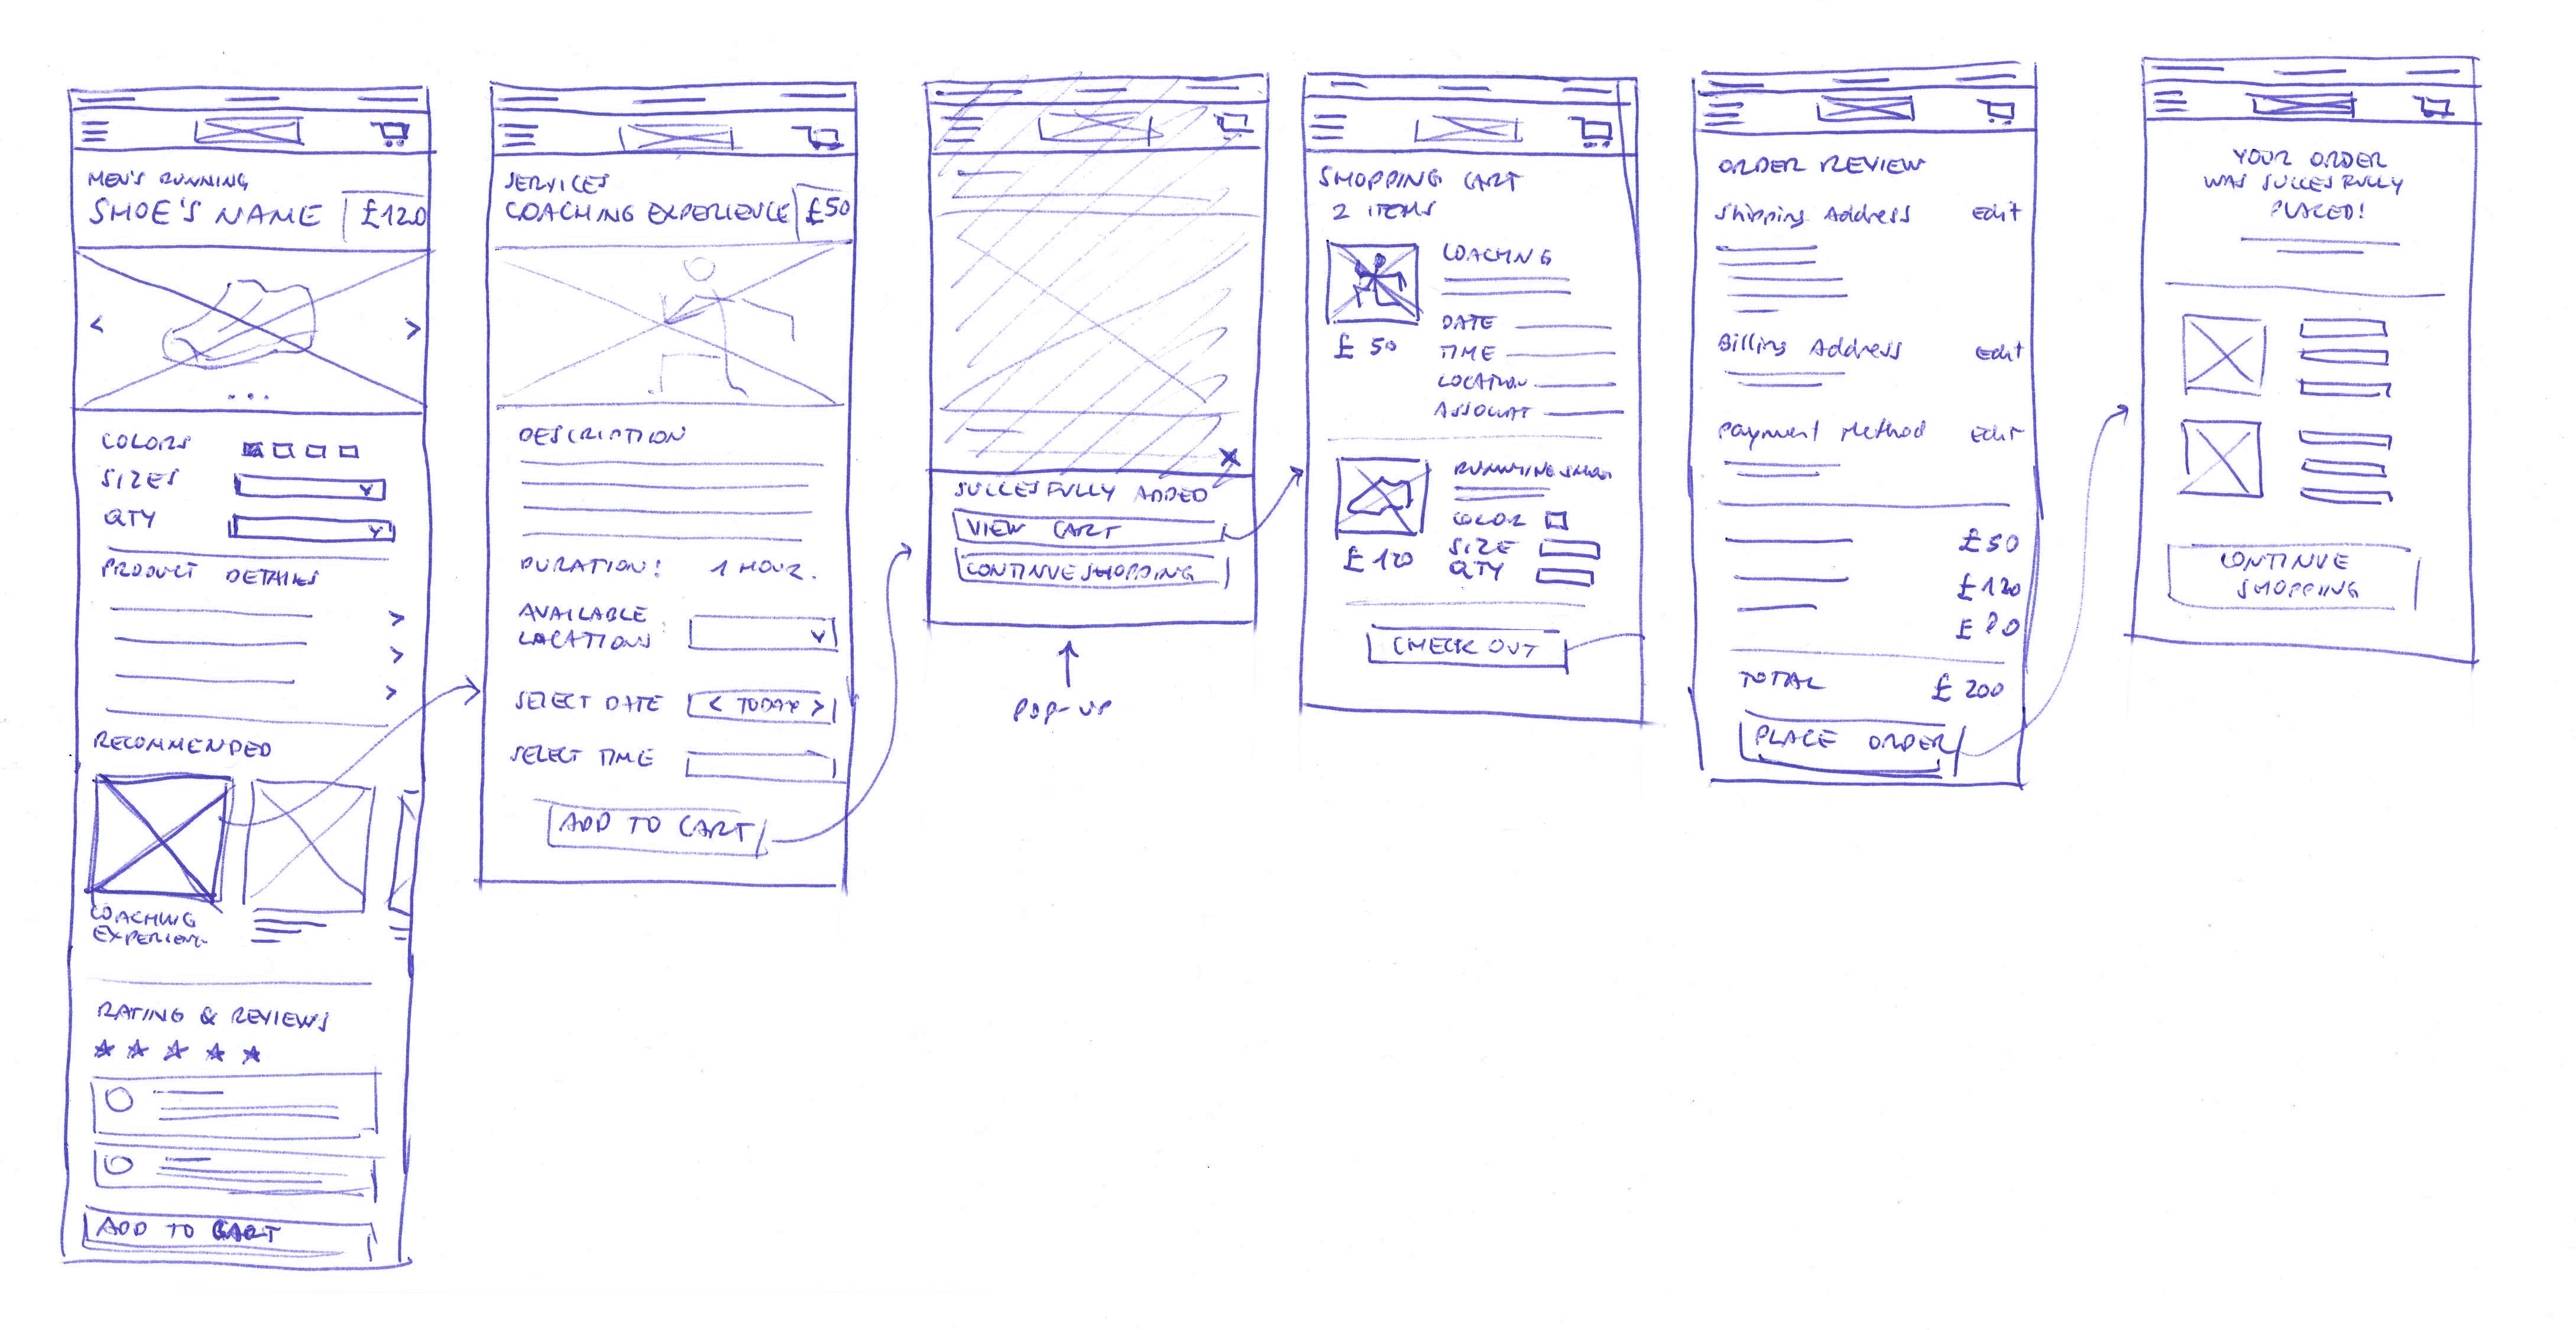 MEN'S RUNNING
SHOE'S NAME £120
< >
COLORS
SIZES
QTY
PRODUCT DETAILS
>
>
>
RECOMMENDED
COACHING
RATING & REVIEWS
ADD TO CART
SERVICES
COACHING EXPERIENCE £50
DESCRIPTION
DURATION: 1 HOUR.
AVAILABLE
LOCATIONS
SELECT DATE < TODAY >
SELECT TIME
ADD TO CART
X
SUCCESFULLY ADDED
VIEW CART
CONTINUE SHOPPING
POP-UP
SHOPPING CART
2 ITEMS
COACHING
£ 50
DATE
TIME
LOCATION
£ 120
COLOR
SIZE
QTY
CHECK OUT
ORDER REVIEW
Shipping Address Edit
Billing Address Edit
Payment Method Edit
£50
£120
TOTAL £ 200
PLACE ORDER
YOUR ORDER
WAS SUCCESFULLY
PLACED!
CONTINUE
SHOPPING